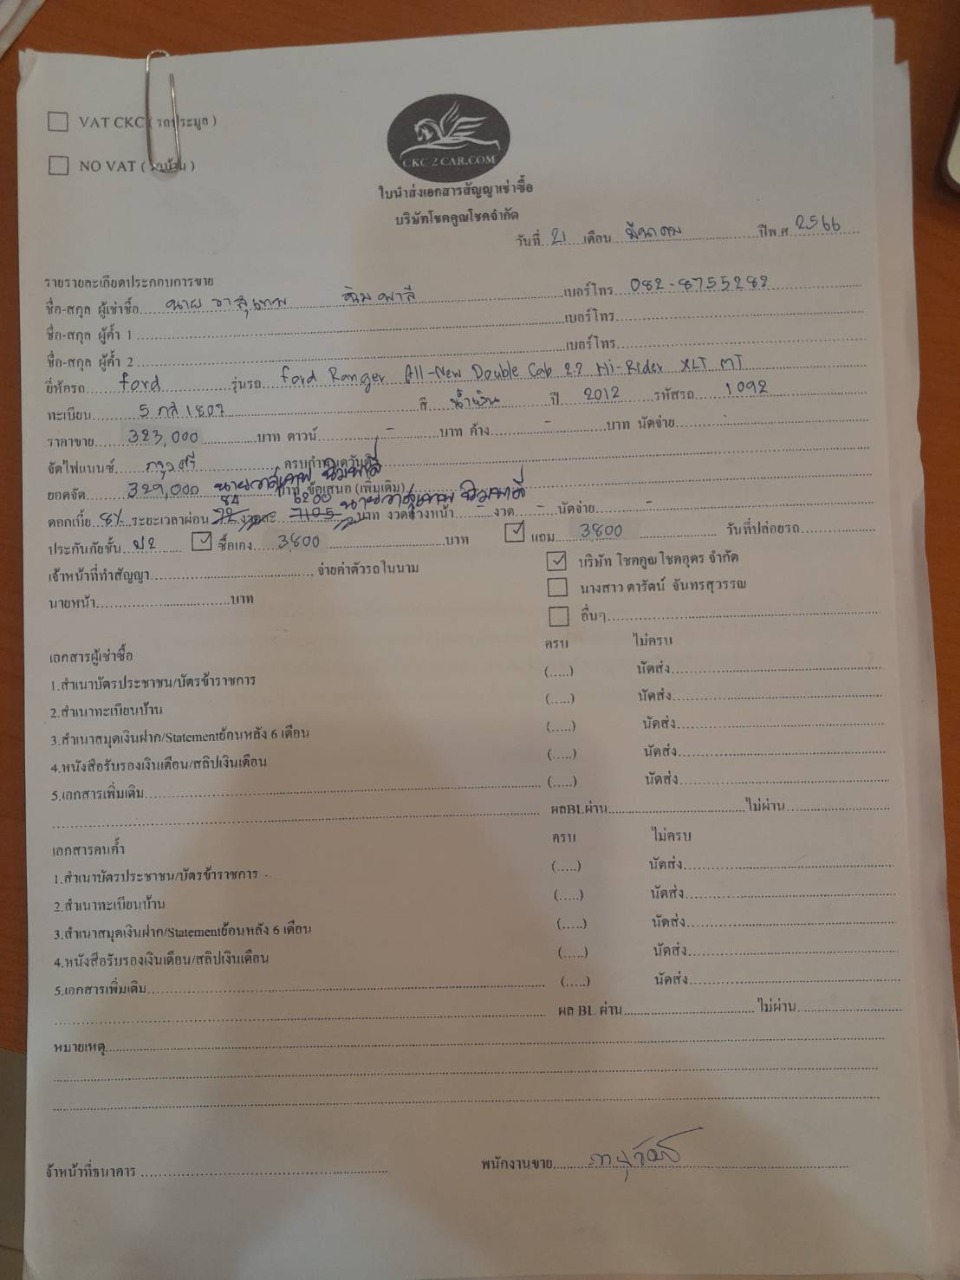 VAT CKC ( รถประมูล )
NO VAT ( รถบ้าน )
CKC 2 CAR.COM
ใบนำส่งเอกสารสัญญาเช่าซื้อ
บริษัทโชคคูณโชคจำกัด
วันที่ 21 เดือน มีนาคม ปีพ.ศ 2566
รายรายละเอียดประกอบการขาย
ชื่อ-สกุล ผู้เช่าซื้อ นาย วาสุเทพ ฉิมพาลี เบอร์โทร 082-8755282
ชื่อ-สกุล ผู้ค้ำ 1 เบอร์โทร
ชื่อ-สกุล ผู้ค้ำ 2 เบอร์โทร
ยี่ห้อรถ ford รุ่นรถ ford Ranger All-New Double Cab 2.2 Hi-Rider XLT MT
ทะเบียน 5 กส 1807 สี น้ำเงิน ปี 2012 รหัสรถ 1092
ราคาขาย 323,000 บาท ดาวน์ - บาท ค้าง - บาท นัดจ่าย
จัดไฟแนนซ์ กรุงศรี ครบกำหนดวันที่ นายวาสุเทพ ฉิมพาลี
ยอดจัด 329,000 บาท ข้อเสนอ (เพิ่มเติม)
84 6200 นายวาสุเทพ ฉิมพาลี
ดอกเบี้ย 8% ระยะเวลาผ่อน 72 งวดละ 7105 บาท งวดล่วงหน้า - งวด - นัดจ่าย -
ประกันภัยชั้น ป2 ซื้อเอง 3,800 บาท แถม 3800 วันที่ปล่อยรถ
เจ้าหน้าที่ทำสัญญา จ่ายค่าตัวรถในนาม บริษัท โชคคูณโชคอุดร จำกัด
นางสาว ดารัตน์ จันทรสุวรรณ
นายหน้า บาท อื่นๆ
เอกสารผู้เช่าซื้อ ครบ ไม่ครบ
1.สำเนาบัตรประชาชน/บัตรข้าราชการ (.....) นัดส่ง
2.สำเนาทะเบียนบ้าน (.....) นัดส่ง
3.สำเนาสมุดเงินฝาก/Statementย้อนหลัง 6 เดือน (.....) นัดส่ง
4.หนังสือรับรองเงินเดือน/สลิปเงินเดือน (.....) นัดส่ง
5.เอกสารเพิ่มเติม (.....) นัดส่ง
ผลBLผ่าน ไม่ผ่าน
เอกสารคนค้ำ ครบ ไม่ครบ
1.สำเนาบัตรประชาชน/บัตรข้าราชการ (.....) นัดส่ง
2.สำเนาทะเบียนบ้าน (.....) นัดส่ง
3.สำเนาสมุดเงินฝาก/Statementย้อนหลัง 6 เดือน (.....) นัดส่ง
4.หนังสือรับรองเงินเดือน/สลิปเงินเดือน (.....) นัดส่ง
5.เอกสารเพิ่มเติม (.....) นัดส่ง
ผล BL ผ่าน ไม่ผ่าน
หมายเหตุ
จ้าหน้าที่ธนาคาร พนักงานขาย